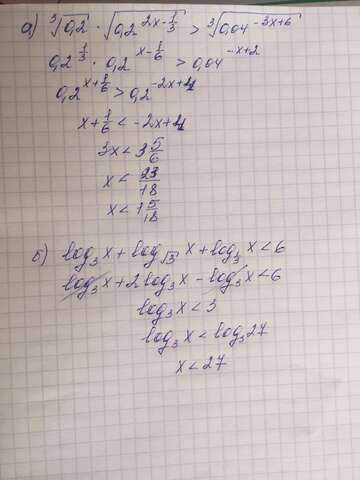 а) ∛0,2 · √(0,2^(2x-1/3)) > ∛(0,04^(-3x+6))
0,2^(1/3) · 0,2^(x-1/6) > 0,04^(-x+2)
0,2^(x+1/6) > 0,2^(-2x+4)
x+1/6 < -2x+4
3x < 3 5/6
x < 23/18
x < 1 5/18
б) log₃x + log_√3 x + log_(1/3) x < 6
log₃x + 2log₃x - log₃x < 6
log₃x < 3
log₃x < log₃27
x < 27